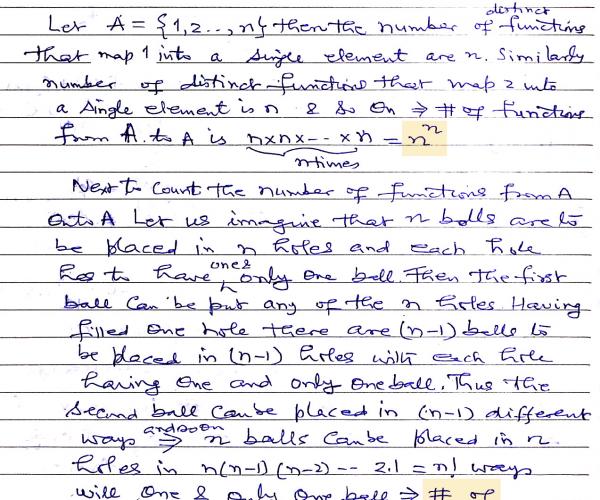 distinct
Let A = {1,2..,n} then the number of functions
that map 1 into a single element are n. Similarly
number of distinct functions that map 2 into
a single element is n & so on ⇒ # of functions
from A to A is n×n×-- ×n = nⁿ
n times
Next to count the number of functions from A
onto A Let us imagine that n balls are to
be placed in n holes and each hole
has to have one & only one ball. Then the first
ball can be put any of the n holes. Having
filled one hole there are (n-1) balls to
be placed in (n-1) holes with each hole
having one and only one ball. Thus the
second ball can be placed in (n-1) different
ways and so on ⇒ n balls can be placed in n
holes in n(n-1)(n-2) -- 2.1 = n! ways
will one & only one ball ⇒ # of